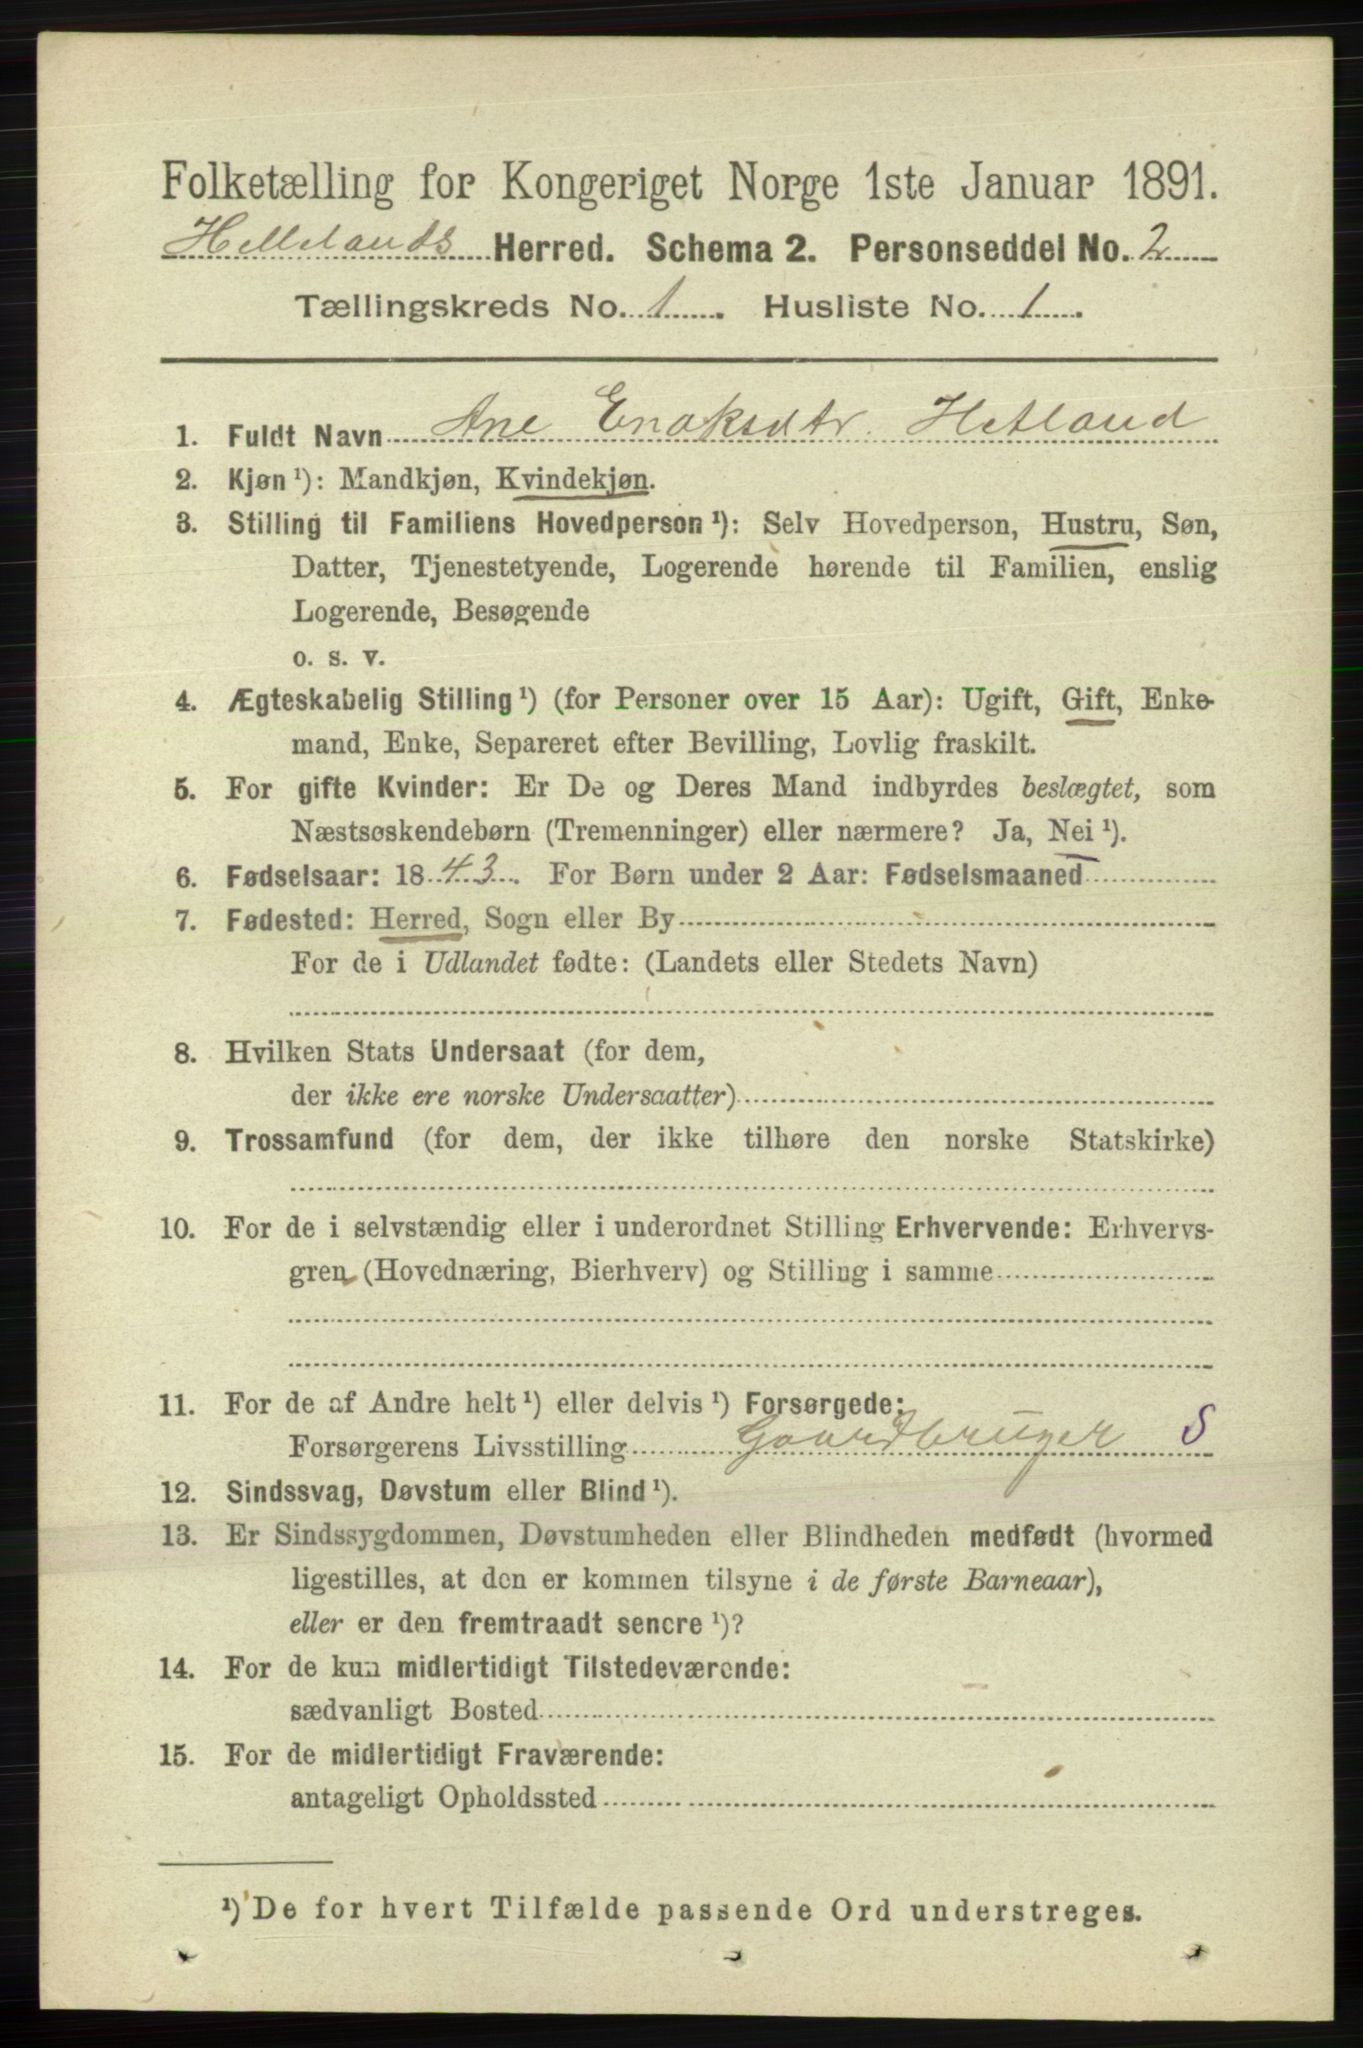 Folketælling for Kongeriget Norge 1ste Januar 1891.
Hellelands Herred. Schema 2. Personseddel No. 2
Tællingskreds No. 1. Husliste No. 1.
1. Fuldt Navn Ane Enoksdtr. Hetland
2. Kjøn ¹): Mandkjøn, Kvindekjøn.
3. Stilling til Familiens Hovedperson ¹): Selv Hovedperson, Hustru, Søn,
Datter, Tjenestetyende, Logerende hørende til Familien, enslig
Logerende, Besøgende
o. s. v.
4. Ægteskabelig Stilling ¹) (for Personer over 15 Aar): Ugift, Gift, Enke-
mand, Enke, Separeret efter Bevilling, Lovlig fraskilt.
5. For gifte Kvinder: Er De og Deres Mand indbyrdes beslægtet, som
Næstsøskendebørn (Tremenninger) eller nærmere? Ja, Nei ¹).
6. Fødselsaar: 1843. For Børn under 2 Aar: Fødselsmaaned
7. Fødested: Herred, Sogn eller By
For de i Udlandet fødte: (Landets eller Stedets Navn)
8. Hvilken Stats Undersaat (for dem,
der ikke ere norske Undersaatter)
9. Trossamfund (for dem, der ikke tilhøre den norske Statskirke)
10. For de i selvstændig eller i underordnet Stilling Erhvervende: Erhvervs-
gren (Hovednæring, Bierhverv) og Stilling i samme
11. For de af Andre helt ¹) eller delvis ¹) Forsørgede:
Forsørgerens Livsstilling Gaardbruger S
12. Sindssvag, Døvstum eller Blind ¹).
13. Er Sindssygdommen, Døvstumheden eller Blindheden medfødt (hvormed
ligestilles, at den er kommen tilsyne i de første Barneaar),
eller er den fremtraadt senere ¹)?
14. For de kun midlertidigt Tilstedeværende:
sædvanligt Bosted
15. For de midlertidigt Fraværende:
antageligt Opholdssted
¹) De for hvert Tilfælde passende Ord understreges.